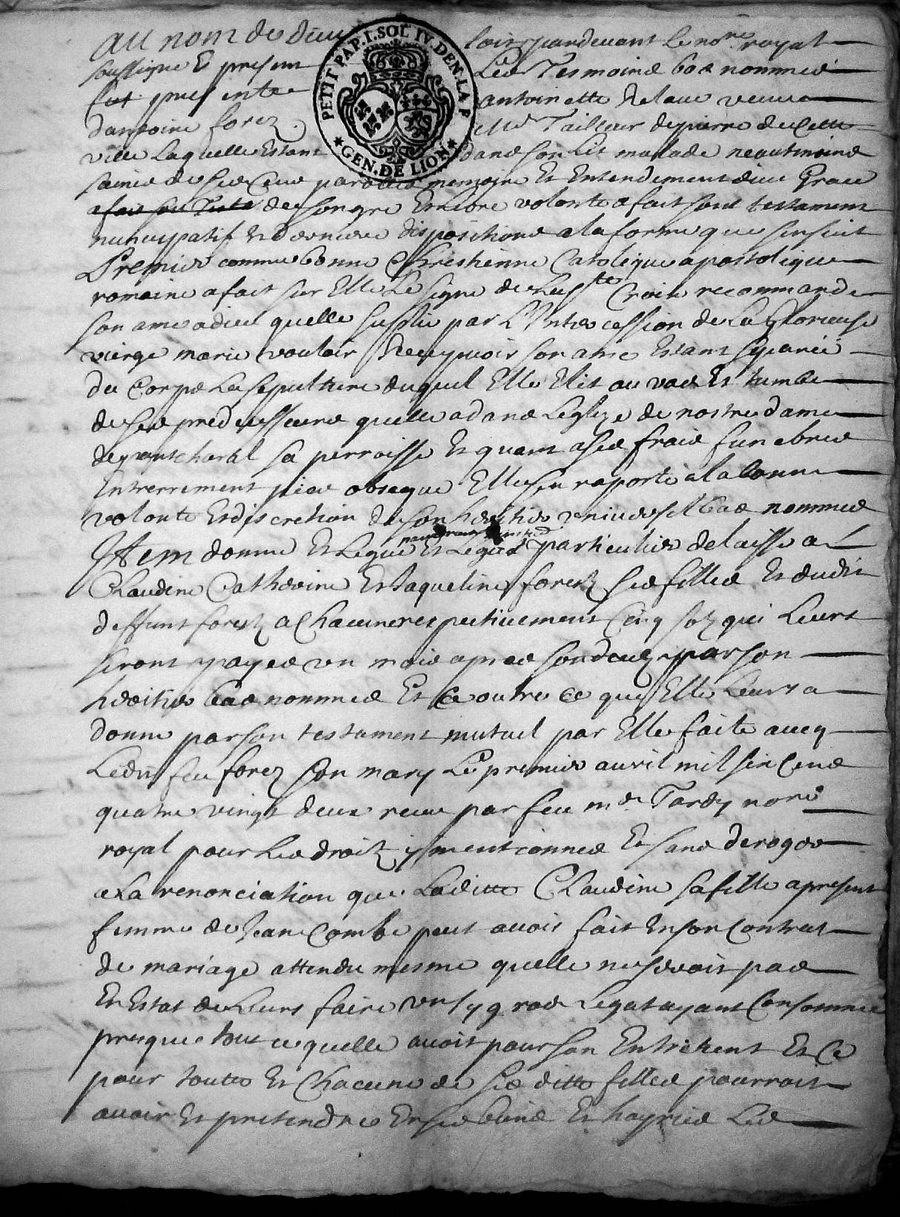 au nom de dieu soit pardevant le nore royal
soussigne et presents les tesmoins bas nommes
fut presente antoinette veuve
dantoine forez tailleur de pierre de cette
PETIT PAP. I. SOL IV. DEN. LA P
GEN. DE LION
ville laquelle estant dans son lit malade neantmoins
saine de ses sens parolle memoire et entendement dieu grace
de son gre et libre volonte a fait son testament
nuncupatif et derniere disposition a la forme que sensuit
Premier comme bonne Chrestienne Catolique apostolique
romaine a fait sur elle le signe de la ste Croix recommande
son ame a dieu quelle suplie par lintercession de la glorieuse
vierge marie vouloir recepvoir son ame estant separée
du corps la sepulture duquel elle elit au vas et tumbe
de ses predecesseurs quelle a dans leglize de nostre dame
de sa perroisse et quant a ses frais funebres
enterrement obseque elle sen raporte a la bonne
volonte et discretion de son heritier universel bas nomme
Item donne et legue et legat particulier delaisse a
Claudine Catherine et Jaqueline forest ses filles et dudit
deffunt forest a chacune respectivement cinq solz qui leurs
seront payes un mois apres son deces par son
heritier bas nomme et ce outre ce quelle leurs a
donne par son testament mutuel par elle faite avecq
ledit feu forez son mary le premier avril mil six cens
quatre vingt deux receu par feu me Tardy nore
royal pour les droitz y mentionnes et sans deroger
a la renonciation que laditte Claudine sa fille a present
femme de Jean Combe peut avoir fait en son contrat
de mariage attendu mesme quelle ne seroit pas
en estat de leurs faire un sy gros legat ayant consomme
presque tout ce quelle avoit pour son entretient et ce
pour toutes et chacune de ses dittes filles pourroit
avoir et pretendre en ses biens et hoyries les